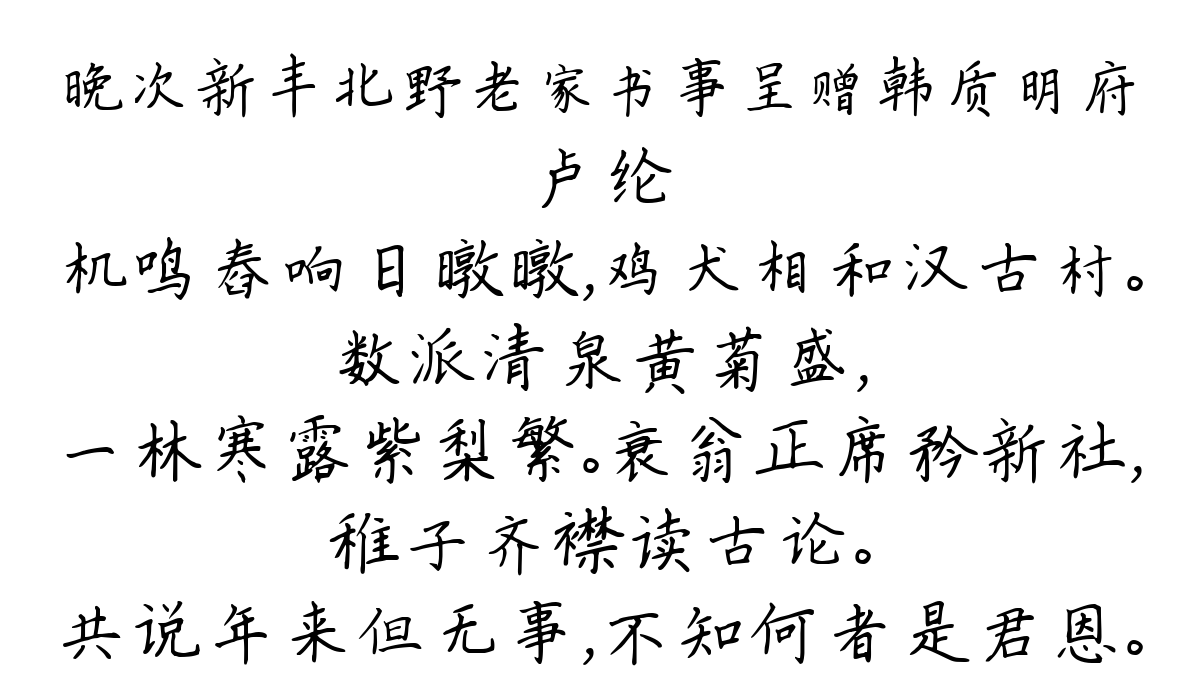 晚次新丰北野老家书事呈赠韩质明府
卢纶
机鸣舂响日暾暾,鸡犬相和汉古村。
数派清泉黄菊盛,
一林寒露紫梨繁。衰翁正席矜新社,
稚子齐襟读古论。
共说年来但无事,不知何者是君恩。